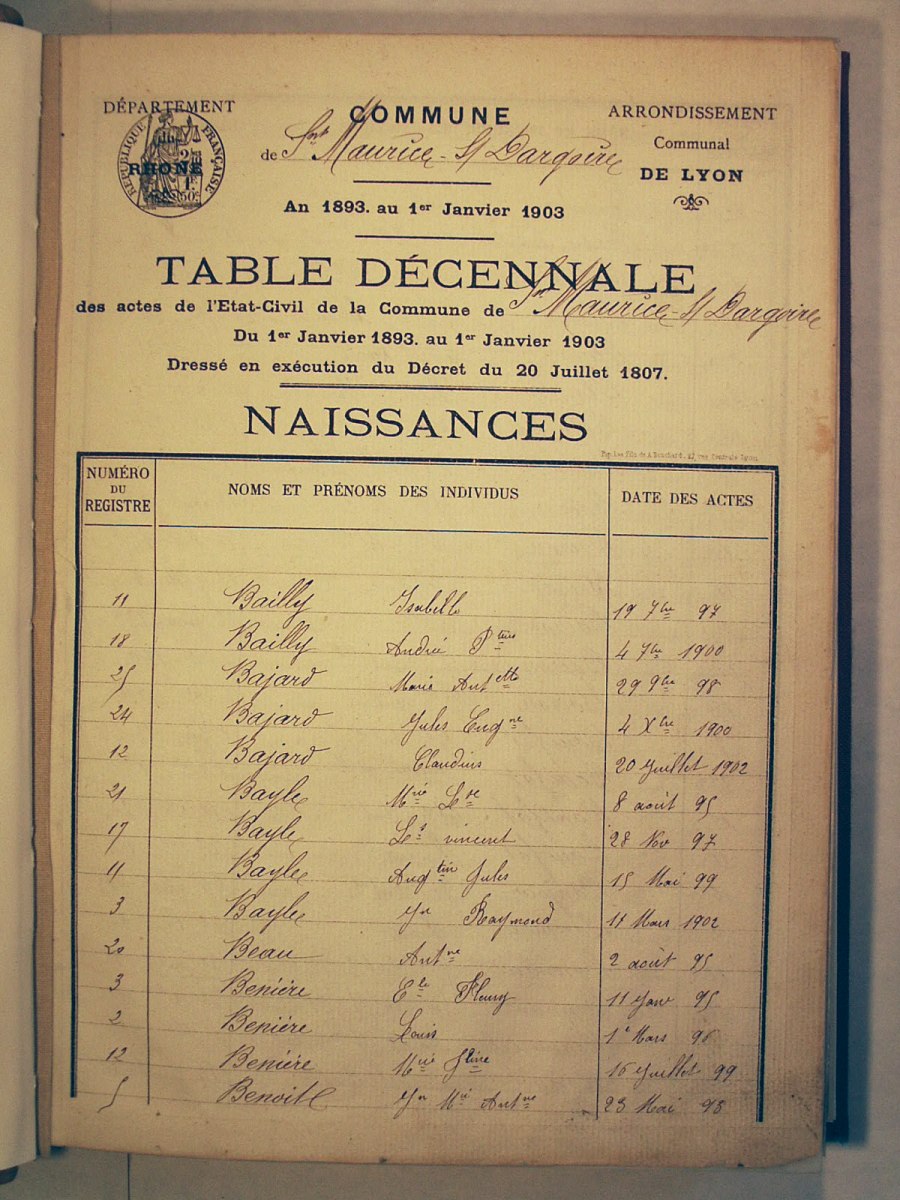 DÉPARTEMENT
RÉPUBLIQUE FRANÇAISE
DU
RHÔNE
COMMUNE
de St Maurice-S/Dargoire
ARRONDISSEMENT
Communal
DE LYON
An 1893. au 1er Janvier 1903
TABLE DÉCENNALE
des actes de l'Etat-Civil de la Commune de St Maurice-S/Dargoire
Du 1er Janvier 1893. au 1er Janvier 1903
Dressé en exécution du Décret du 20 Juillet 1807.
NAISSANCES
NUMÉRO DU REGISTRE NOMS ET PRÉNOMS DES INDIVIDUS DATE DES ACTES
11 Bailly Isabelle 19 7bre 97
18 Bailly André 4 7bre 1900
25 Bajard Marie Antette 29 9bre 98
24 Bajard Jules Eugne 4 Xbre 1900
12 Bajard Claudius 20 Juillet 1902
21 Bayle Mie Lse 8 août 95
17 Bayle Ls vincent 28 Nov 97
11 Bayle Augtin Jules 15 Mai 99
3 Bayle Jn Raymond 11 Mars 1902
20 Beau Antne 2 août 95
3 Benière Fleury 11 Janv 95
2 Benière Louis 1r Mars 96
12 Benière Mie 16 Juillet 99
5 Benoit Jn Mie Antne 23 Mai 93